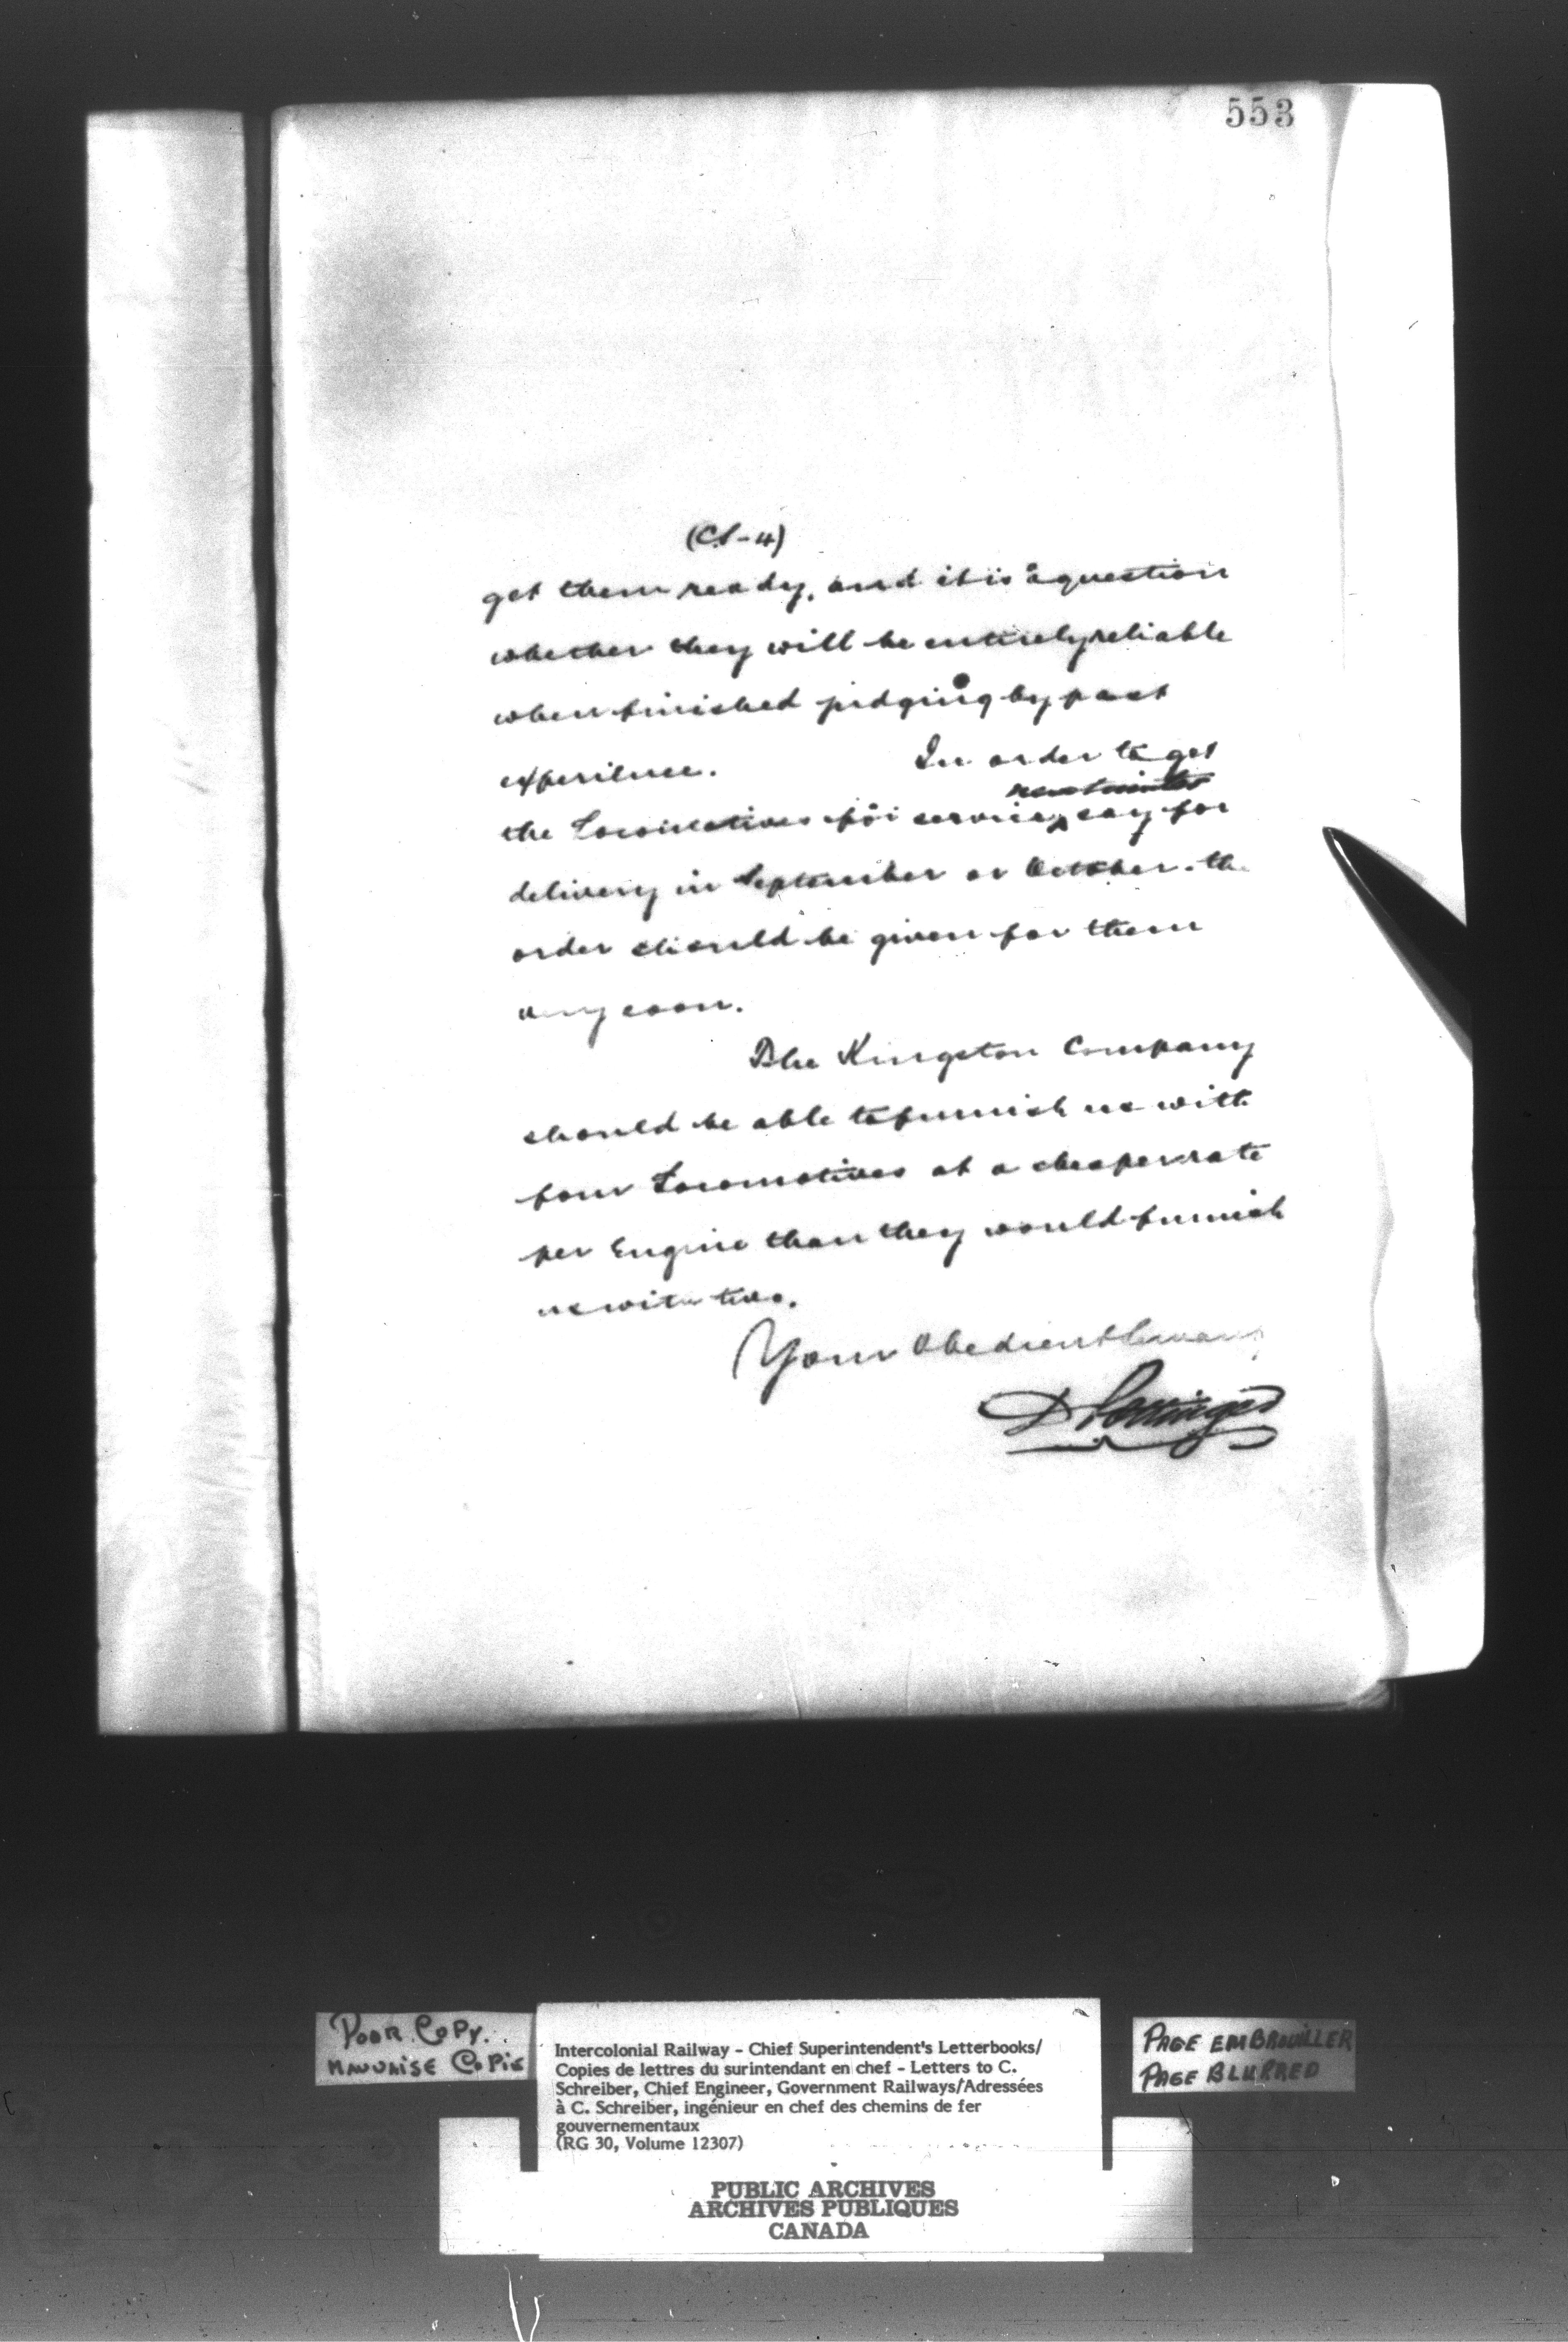 553
(CS-4)
get them ready, and it is a question
whether they will be entirely reliable
when finished judging by past
experience. In order to get
next winter
the Locomotives for service, say for
delivery in September or October. the
order should be given for them
very soon.
The Kingston Company
should be able to furnish us with
four Locomotives at a cheaper rate
per Engine than they would furnish
us with two.
Your Obedient Servant
D Pottinger
POOR COPY.
MAUVAISE COPIE
Intercolonial Railway - Chief Superintendent's Letterbooks/
Copies de lettres du surintendant en chef - Letters to C.
Schreiber, Chief Engineer, Government Railways/Adressées
à C. Schreiber, ingénieur en chef des chemins de fer
gouvernementaux
(RG 30, Volume 12307)
PAGE EMBROUILLER
PAGE BLURRED
PUBLIC ARCHIVES
ARCHIVES PUBLIQUES
CANADA